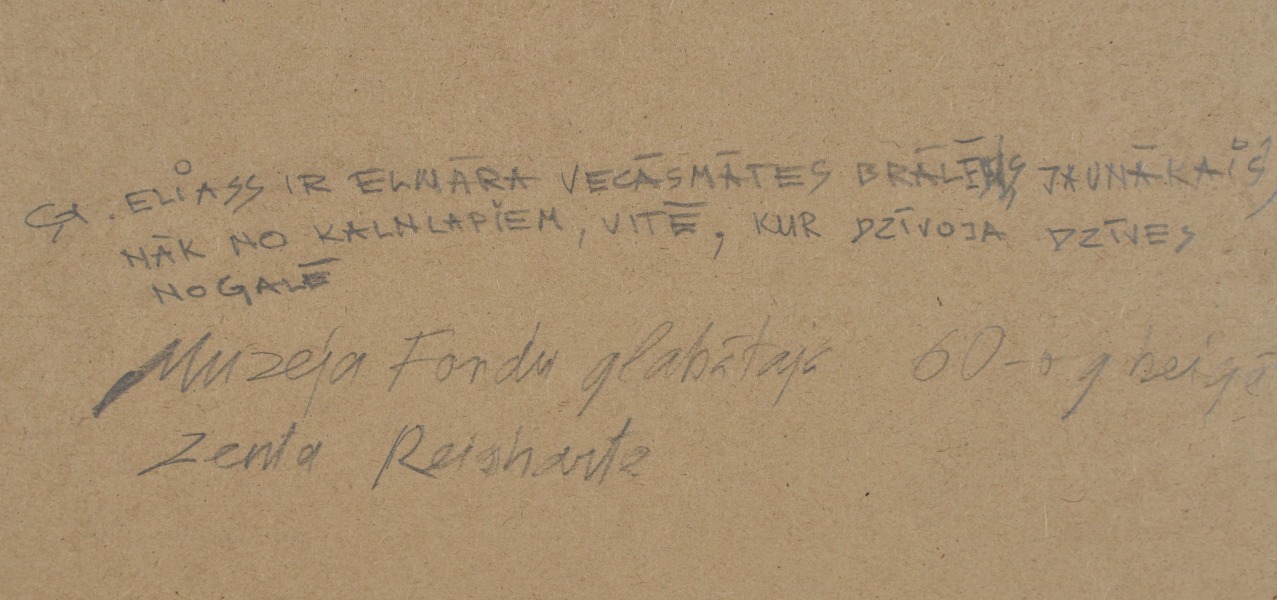 G. ELIASS IR ELWĀRA VECĀSMĀTES BRĀLĒNS JAUNĀKAIS,
NĀK NO KALNLAPIEM, VITĒ, KUR DZĪVOJA DZĪVES
NOGALĒ
Muzeja Fondu glabātāja 60-o g beigā
Zenta